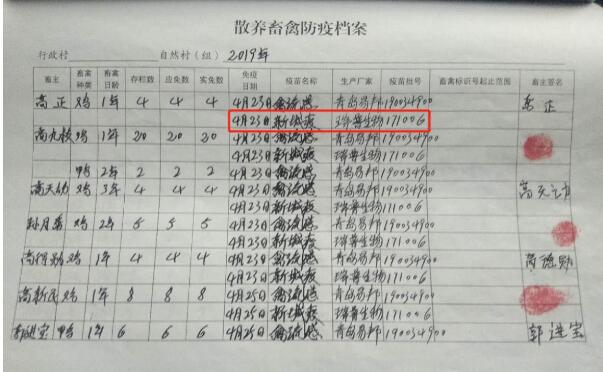 散养畜禽防疫档案
行政村 自然村（组） 2019年
畜主 畜禽种类 畜禽日龄 存栏数 应免数 实免数 免疫日期 疫苗名称 生产厂家 疫苗批号 畜禽标识号起止范围 畜主签名
高正 鸡 1年 4 4 4 4月23日 禽流感 青岛易邦 190034900 高正
4月23日 新城疫 瑞普生物 171006
高九 鸡 1年 20 20 20 4月23日 禽流感 青岛易邦 190034900
4月23日 新城疫 瑞普生物 171006
鸭 2年 2 2 2 4月23日 禽流感 青岛易邦 190034900
高天幼 鸡 3年 4 4 4 4月23日 禽流感 青岛易邦 190034900 高天
4月23日 新城疫 瑞普生物 171006
孙月 鸡 2年 5 5 5 4月23日 禽流感 青岛易邦 190034900
4月23日 新城疫 瑞普生物 171006
高得勋 鸡 1年 4 4 4 4月23日 禽流感 青岛易邦 190034900
4月23日 新城疫 瑞普生物 171006
高新民 鸡 1年 8 8 8 4月25日 禽流感 青岛易邦 190034900
4月25日 新城疫 瑞普生物 171006
郭进宝 鸭 1年 6 6 6 4月25日 禽流感 青岛易邦 190034900 郭进宝